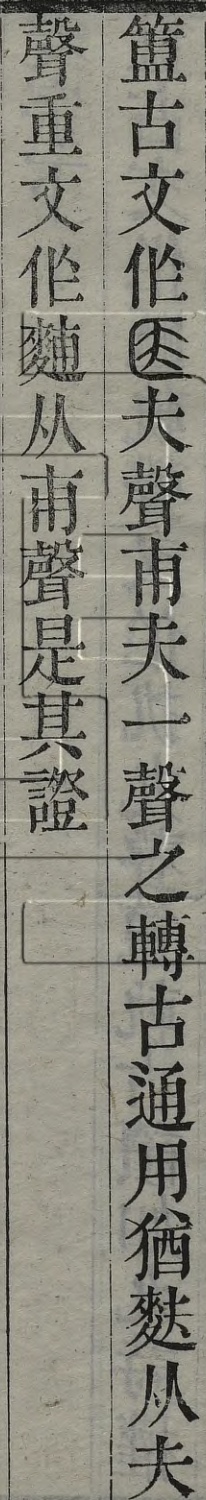 簠古文作𠥑夫聲甫夫一聲之轉古通用猶麩从夫
聲重文作麱从甫聲是其證